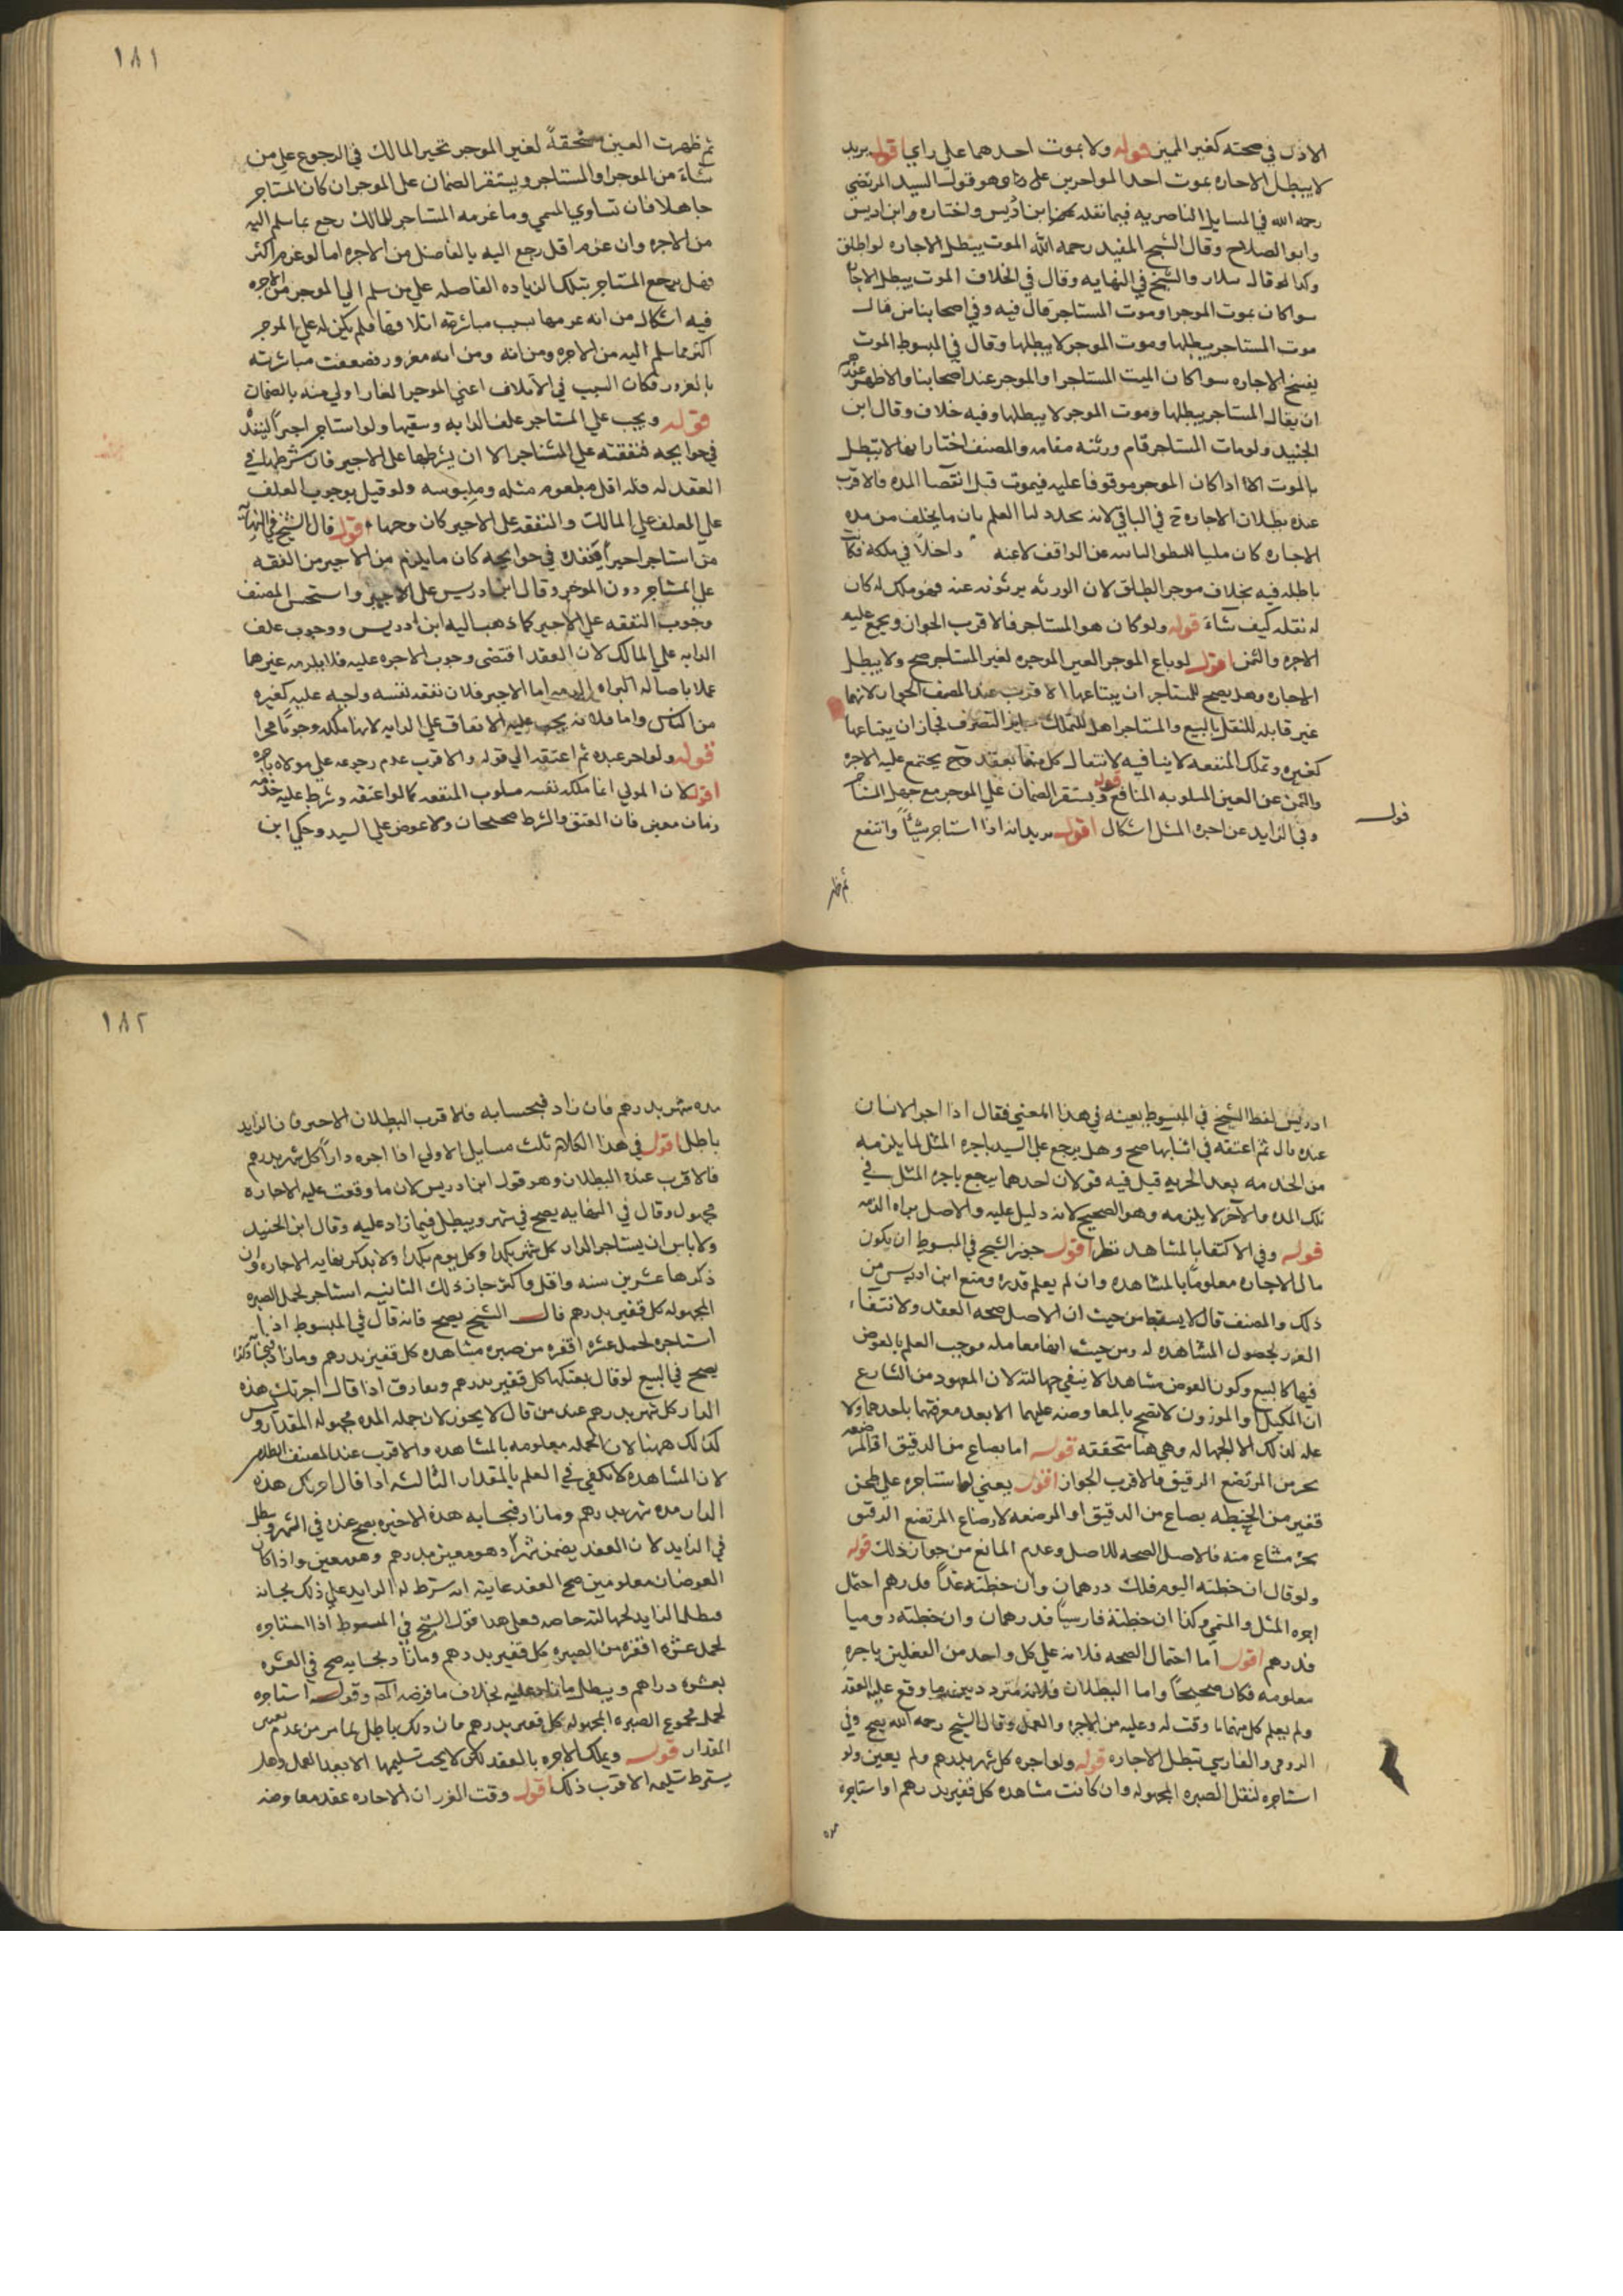 الاذن في صحته كغير المميز قوله ولا بموت احدهما على راي اقول يريد
لا يبطل الاجاره بموت احد المواجرين على راي وهو قول السيد المرتضي
رحمه الله في المسايل الناصريه فيما نقله عنه ابن ادريس واختاره وابن ادريس
وابو الصلاح وقال الشيخ المفيد رحمه الله الموت يبطل الاجاره لواطلق
وكذا قال سلار والشيخ في النهايه وقال في الخلاف الموت يبطل الاجاره
سوا كان بموت الموجر او موت المستاجر قال فيه وفي اصحابنا من قال
موت المستاجر يبطلها وموت الموجر لا يبطلها وقال في المبسوط الموت
يفسخ الاجاره سوا كان الميت المستاجر او الموجر عند اصحابنا والاظهر عندهم
ان يقال المستاجر يبطلها وموت الموجر لا يبطلها وفيه خلاف وقال ابن
الجنيد ولو مات المستاجر قام ورثته مقامه والمصنف اختار انها لا تبطل
بالموت الا اذا كان الموجر موقوفا عليه فيموت قبل انقضا المده فالاقرب
عنده بطلان الاجاره ح في الباقي لانه تجدد لنا العلم بان ما يخلف من مده
الاجاره كان ملكا للبطن الثاني عن الواقف لا عنه داخلا في ملكه فكانت
باطله فيه بخلاف موجر الطلق لان الورثه يرثونه عنه فهو ملك له كان
له نقله كيف شآء قوله ولو كان هو المستاجر فالاقرب الجواز ويجمع عليه
الاجره والثمن اقول لو باع الموجر العين الموجره لغير المستاجر صح ولا يبطل
الاجاره وهل يصح للمستاجر ان يبتاعها الاقرب عند المصنف الجواز لانها
غير قابله للنقل بالبيع والمستاجر اهل للتملك جايز التصرف فجاز ان يبتاعها
كغيره وتملك المنفعه لا ينافيه لانتقال كل منهما بعقد وح يجتمع عليه الاجره
والثمن عن العين المسلوبه المنافع قوله ويستقر الضمان على الموجر مع جهل المستاجر
وفي الزايد عن اجره المثل اشكال اقول يريد انه اذا استاجر شيئاً وانتفع
قوله
ثم ظهر
١٨١
ثم ظهرت العين مستحقةً لغير الموجر تخير المالك في الرجوع على من
شآء من الموجر او المستاجر ويستقر الضمان على الموجر ان كان المستاجر
جاهلا فان تساوي المسمي وما غرمه المستاجر للمالك رجع بما سلم اليه
من الاجره وان غرم اقل رجع اليه بالفاضل من الاجره اما لو غرم اكثر
فهل يرجع المستاجر بتلك الزياده الفاضله على من سلم الي الموجر من الاجره
فيه اشكال من انه غرمها بسبب مباشرته اتلافها فلم يكن له على الموجر
اكثر مما سلم اليه من الاجره ومن انه ومن انه مغرور فضعفت مباشرته
بالغرور فكان السبب في الاتلاف اعني الموجر الغار اولي منه بالضمان
قوله ويجب على المستاجر علف الدابه وسقيها ولو استاجر اجيراً لينفذه
في حوايجه فنفقته على المستاجر الا ان يشرطها على الاجير فان شرطها في
العقد له فله اقل مطعوم مثله وملبوسه ولو قيل بوجوب العلف
على المعلف على المالك والنفقه على الاجير كان وجها قوله قال الشيخ في النهايه
من استاجر اجيراً لينفذه في حوايجه كان ما يلزم من الاجير من النفقه
على المستاجر دون الموجر وقال ابن ادريس على الاجير واستحسن المصنف
وجوب النفقه على الاجير كما ذهب اليه ابن ادريس ووجوب علف
الدابه على المالك لان العقد اقتضى وجوب الاجره عليه فلا يلزمه غيرها
عملا باصاله البراه اما الاجير فلان نفقه نفسه واجبه عليه كغيره
من الناس واما فلانه يجب عليه الانفاق على الدابه لانها ملكه وجوبا مجرا
قوله ولو اجر عبده ثم اعتقه الي قوله والاقرب عدم رجوعه على مولاه باجره
اقول لان المولي انما ملكه نفسه مسلوب المنفعه كما لو اعتقه وشرط عليه خدمه
زمان معين فان العتق والشرط صحيحان ولا عوض على السيد وحكي ابن
ادريس لفظ الشيخ في المبسوط بعينه في هذا المعني فقال اذا اجر الانسان
عبده قال ثم اعتقه في اثنايها صح وهل يرجع على السيد باجره المثل لما يلزمه
من الخدمه بعد الحريه قيل فيه قولان احدهما يرجع باجره المثل في
تلك المده والآخر لا يلزمه وهو الصحيح لانه دليل عليه والاصل براه الذمه
قوله وفي الاكتفا بالمشاهده نظر اقول جوز الشيخ في المبسوط ان يكون
مال الاجاره معلوماً بالمشاهده وان لم يعلم قدره ومنع ابن ادريس من
ذلك والمصنف قال لا يسقط من حيث ان الاصل صحه العقد ولانتفاء
الغرر لحصول المشاهده له ومن حيث انها معامله موجب العلم بالعوض
فيها كالبيع وكون العوض مشاهدا لا ينفي جهالته لان المعهود من الشارع
ان المكيل او الموزون لا تصح بالمعاوضه عليهما الا بعد معرفتهما باحدهما ولا
عله لذلك الا الجهاله وهي هنا متحققه قوله اما بصاع من الدقيق او المرضعه
بجزء من المرتضع الرقيق فالاقرب الجواز اقول يعني لو استاجره على طحن
قفيز من الحنطه بصاع من الدقيق او المرضعه لارضاع المرتضع الرقيق
بجزء مشاع منه فالاصل الصحه للاصل وعدم المانع من جواز ذلك قوله
ولو قال ان خطته اليوم فلك درهمان وان خطته غداً فدرهم احتمل
اجره المثل والمسمي وكذا ان خطته فارسياً فدرهمان وان خطته روميا
فدرهم اقول اما احتمال الصحه فلانه على كل واحد من الفعلين باجره
معلومه فكان صحيحاً واما البطلان فلانه متردد بينهما وقع عليه العقد
ولم يعلم كل منهما ما وقت له وعليه من الاجره والعمل وقال الشيخ رحمه الله يصح وفي
الرومي والفارسي تبطل الاجاره قوله ولو اجره كل شهر بدرهم ولم يعين ولو
استاجره لنقل الصبره المجهوله وان كانت مشاهده كل قفيز بدرهم او استاجره
مده
١٨٢
مده شهر بدرهم فان زاد فبحسابه فالاقرب البطلان الا خير فان الزايد
باطل اقول في هذا الكلام ثلث مسايل الاولي اذا اجره داراً كل شهر بدرهم
فالاقرب عنده البطلان وهو قول ابن ادريس لان ما وقعت عليه الاجاره
مجهول وقال في النهايه يصح في شهر ويبطل فيما زاد عليه وقال ابن الجنيد
ولا باس ان يستاجر الدار كل شهر بكذا وكل يوم بكذا ولا يذكر نهايه الاجاره وان
ذكرها عشرين سنه واقل واكثر جاز ذلك الثانيه استاجر لحمل الصبره
المجهوله كل قفيز بدرهم قال الشيخ يصح فانه قال في المبسوط اذا
استاجره لحمل عشره اقفزه من صبره مشاهده كل قفيز بدرهم وما زاد فبحسابه كذا
يصح في البيع لو قال بعتكها كل قفيز بدرهم ويفارق اذا قال اجرتك هذه
الدار كل شهر بدرهم عند من قال لا يجوز لان جمله المده مجهوله المقدار وليس
كذلك ههنا لان الجمله معلومه بالمشاهده والاقرب عند المصنف البطلان
لان المشاهده لا تكفي في العلم بالمقدار الثالثه اذا قال اجرتك هذه
الدار مده شهر بدرهم وما زاد فبحسابه هذه الاخيره يصح عنده في الشهر ويبطل
في الزايد لان العقد يضمن شهراً وهو معين بدرهم وهو معين واذا كان
العوضان معلومين صح العقد غايته انه شرط له الزايد على ذلك بحسابه
فبطل الزايد لجهالته خاصه فعلى هذا قول الشيخ في المبسوط اذا استاجره
لحمل عشره اقفزه من الصبره كل قفيز بدرهم وما زاد بحسابه صح في العشره
بعشره دراهم ويبطل ما زاد عليه بخلاف ما فرضه وقوله استاجره
لحمل مجموع الصبره المجهوله كل قفيز بدرهم فان ذلك باطل لما مر من عدم تعيين
المقدار قوله ويملك الاجره بالعقد لكن لا يجب تسليمها الا بعد العمل وهل
يشترط تسليمه الاقرب ذلك اقول وقت الفرران الاجاره عقد معاوضه